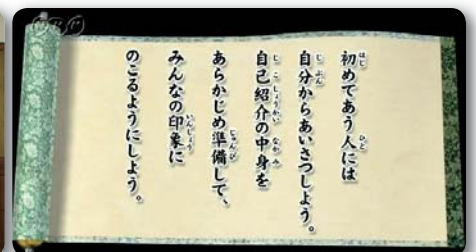 初めてあう人には
自分からあいさつしよう。
自己紹介の中身を
あらかじめ準備して、
みんなの印象に
のこるようにしよう。